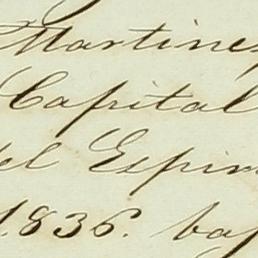 Martinez
Capital
del Espiri
1836. baj